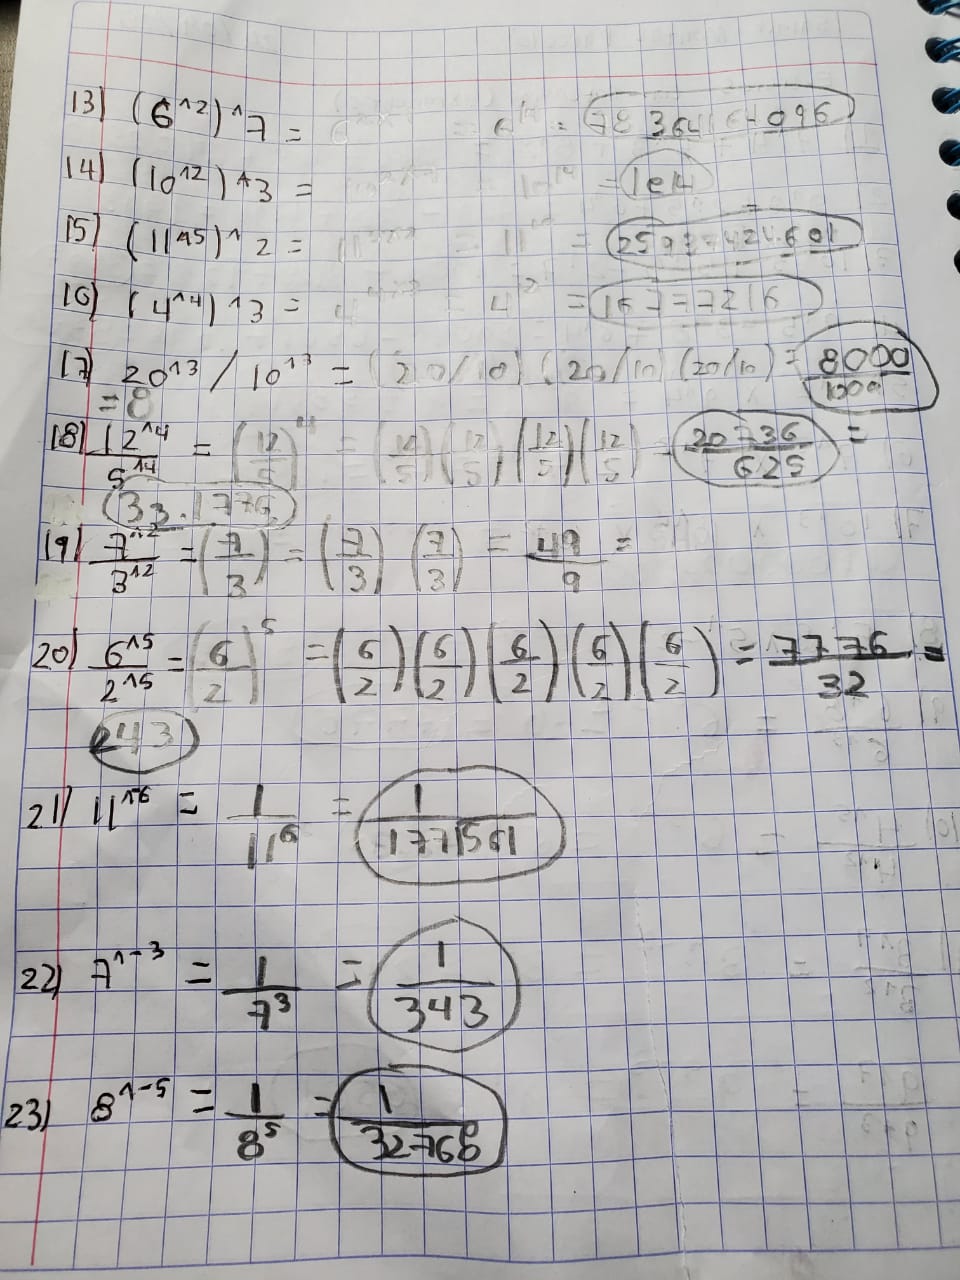 13) (6^2)^7 = = 6^14 = 78 364164 096
14) (10^2)^3 = = 1e14
15) (11^5)^2 = 11 = 11 = 25937424.601
16) (4^4)^3 = 4 = 4 = 16777216
17) 20^3 / 10^3 = (20/10) (20/10) (20/10) = 8000/1000
= 8
18) 12^4/5^4 = (12/5)^4 = (12/5)(12/5)(12/5)(12/5) = 20736/625 =
33.1776
19) 7^2/3^2 = (7/3) = (7/3) (7/3) = 49/9 =
20) 6^5/2^5 = (6/2)^5 = (6/2)(6/2)(6/2)(6/2)(6/2) = 7776/32 =
243
21) 11^-6 = 1/11^6 = 1/1771561
22) 7^-3 = 1/7^3 = 1/343
23) 8^-5 = 1/8^5 = 1/32768